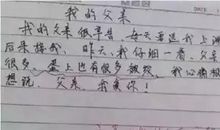 我的父亲
我的父亲很辛苦,每天要送我上
后来接我,昨天我仔细一看,父亲
很多,是上也有很多皱纹,我心
想说,父亲,我爱你!